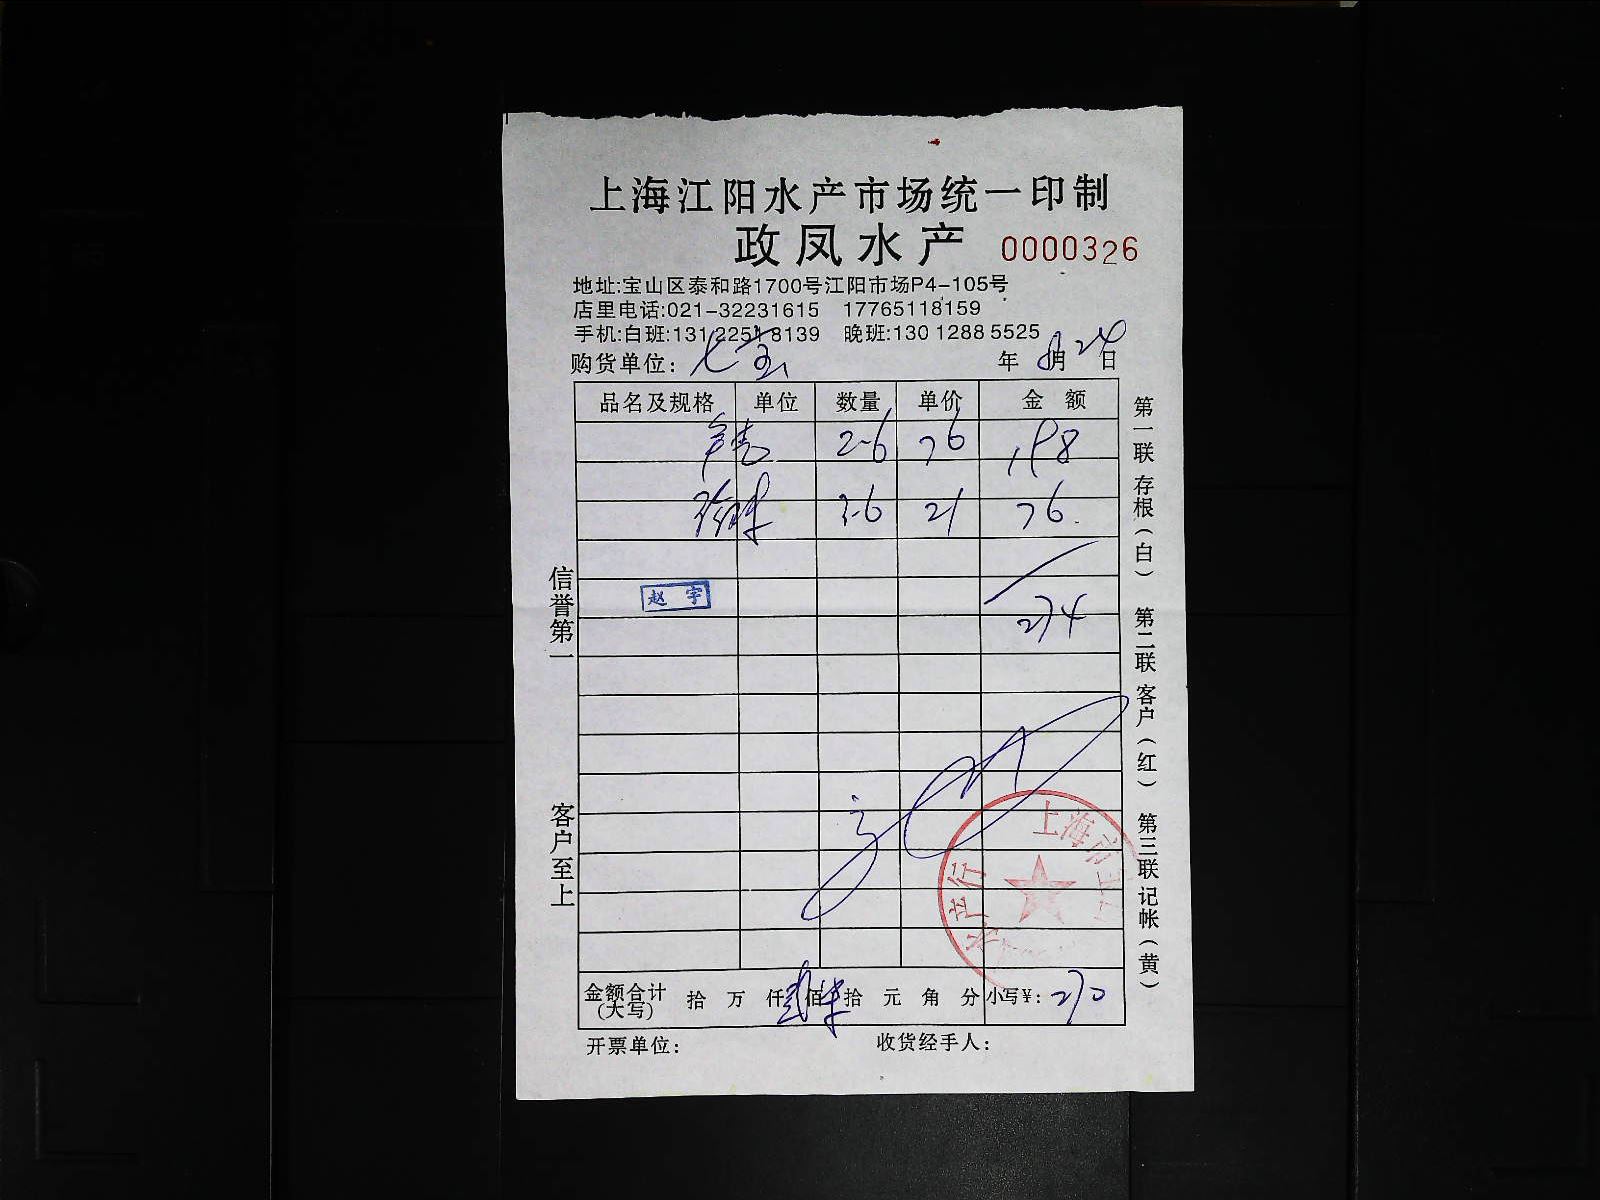 上海江阳水产市场统一印制
政凤水产 0000326
地址:宝山区泰和路1700号江阳市场P4-105号
店里电话:021-32231615 17765118159
手机:白班:131 2251 8139 晚班:130 1288 5525
购货单位: 七宝 年 8月 24日
品名及规格 单位 数量 单价 金额
2-6 76 198
3-6 21 76
赵宇
274
信誉第一
客户至上
第一联 存根(白) 第二联 客户(红) 第三联 记帐(黄)
上海市宝山 水产行
金额合计(大写) 拾 万 仟 佰 拾 元 角 分 小写¥: 270
开票单位: 收货经手人: